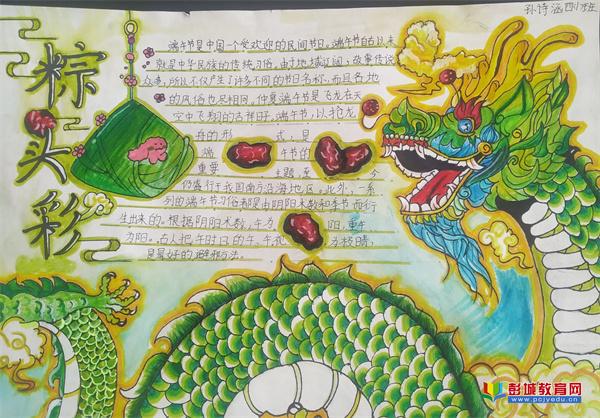 孙诗涵 四1班
粽头彩
端午节是中国一个受欢迎的民间节日。端午节自古以来
就是中华民族的传统习俗,由于地域辽阔,故事传说
众多,所以不仅产生了许多不同的节日名称,而且各地
的风俗也尽相同,仲夏端午节是飞龙在天
空中飞翔的吉祥旺,端午节,以抢龙
舟的形 式,是
端 午节的
重要 主题,至 今
仍盛行于我国南方沿海地区,此外,一系
列的端午节习俗都是由阴阳术数和季节而行
生出来的。根据阴阳术数,午为 阳,重午
为阳。古人把午时日的午,午花 为极晴,
是最好的避邪方法。
彭城教育网
www.pcjyedu.cn